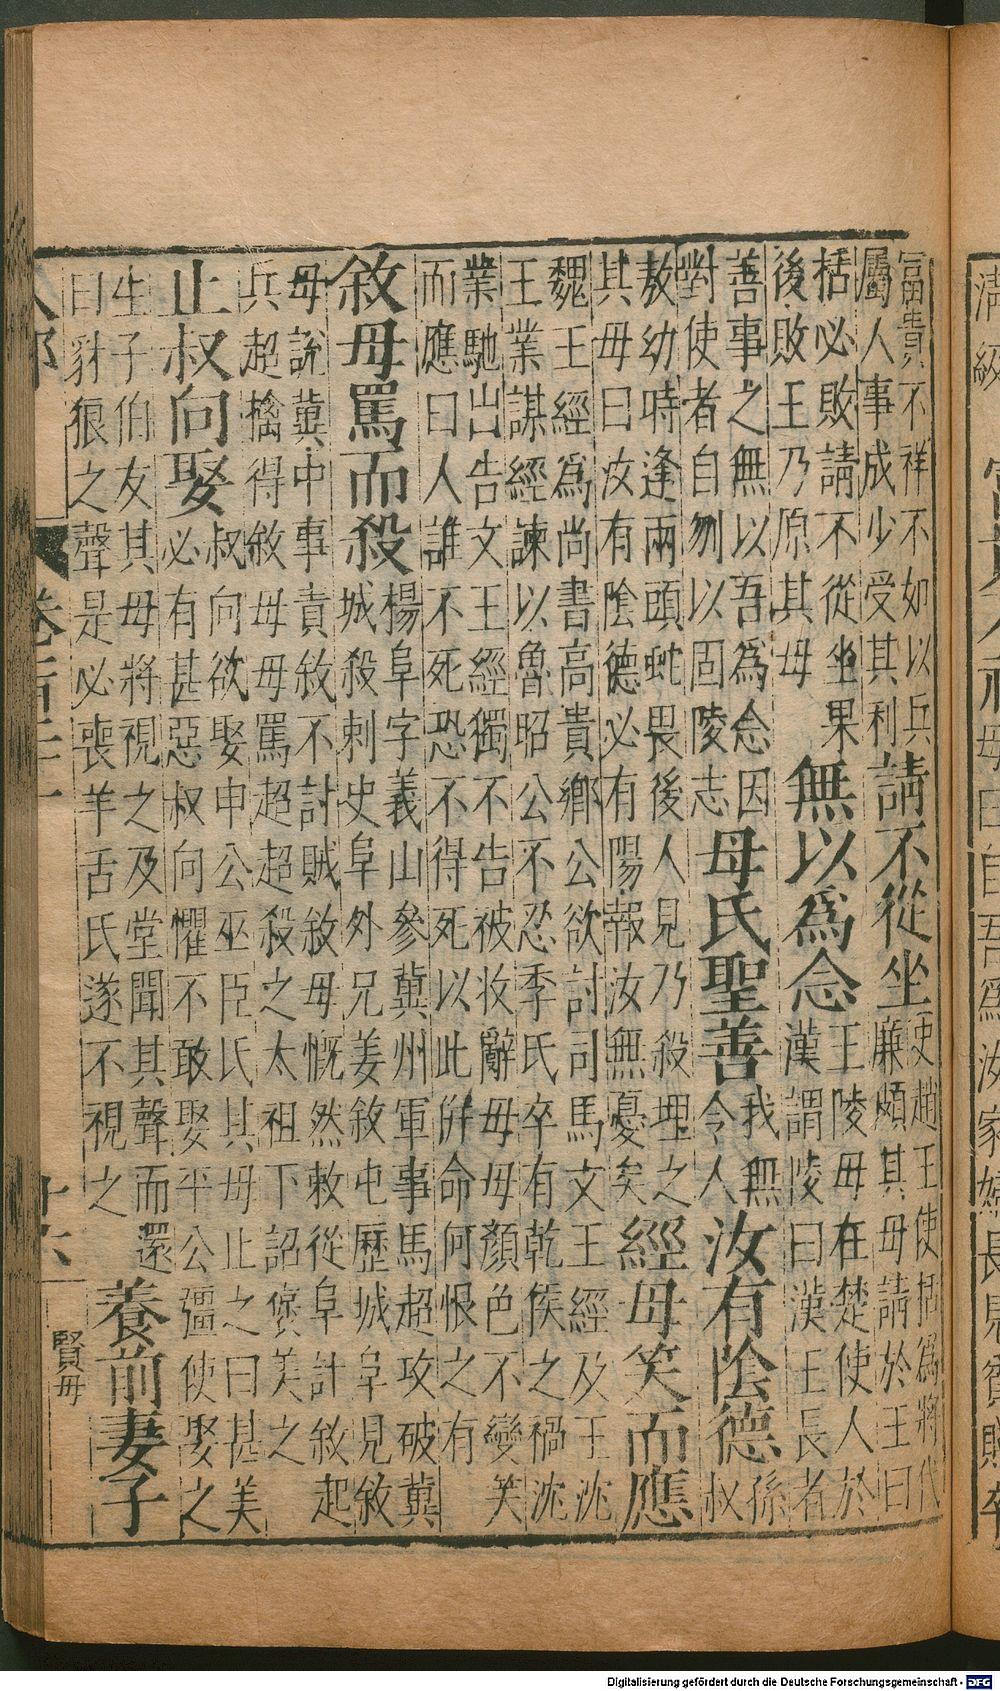 母曰自吾為汝家婦長見貧賤
富貴不祥不如以兵
屬人事成少受其利
請不從坐
史趙王使括為將代
廉頗其母請於王曰
括必敗請不從坐果
後敗王乃原其母
無以為念
王陵母在楚使人於
漢謂陵曰漢王長者
善事之無以吾為念因
對使者自刎以固陵志
母氏聖善
我無
令人
汝有陰德
孫
叔
敖幼時逢兩頭虵畏後人見乃殺埋之
其母曰汝有陰德必有陽報汝無憂矣
經母笑而應
魏王經為尚書高貴鄉公欲討司馬文王經及王沈
王業謀經諫以魯昭公不忍季氏卒有乾侯之禍沈
業馳出告文王經獨不告被收辭母母顏色不變笑
而應曰人誰不死恐不得死以此倂命何恨之有
敘母罵而殺
楊阜字義山參冀州軍事馬超攻破冀
城殺刺史阜外兄姜敘屯歷城阜見敘
母說冀中事責敘不討賊敘母慨然敕從阜計敘起
兵超擒得敘母母罵超超殺之太祖下詔襃美之
止叔向娶
叔向欲娶申公巫臣氏其母止之曰甚美
必有甚惡叔向懼不敢娶平公彊使娶之
生子伯友其母將視之及堂聞其聲而還
曰豺狼之聲是必喪羊舌氏遂不視之
養前妻子
賢母
Digitalisierung gefördert durch die Deutsche Forschungsgemeinschaft - DFG